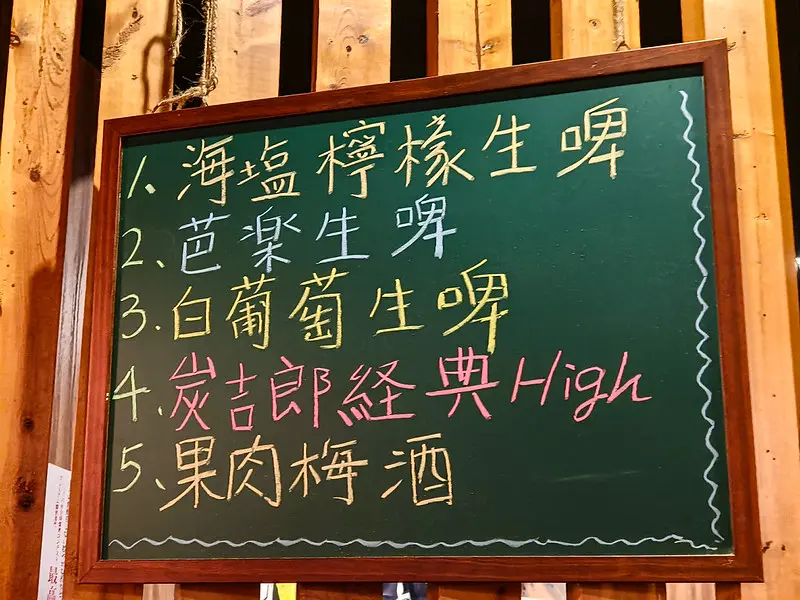 1. 海塩檸檬生啤
2. 芭楽生啤
3. 白葡萄生啤
4. 炭吉郎経典High
5. 果肉梅酒